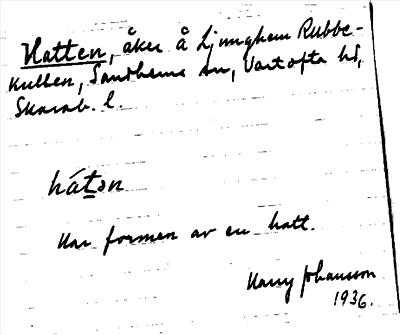 Hatten, åker å Ljunghem Rubbe-
kullen, Sandhems sn, Vartofta hd,
Skarab. l.
hátən
Har formen av en hatt.
Harry Johansson
1936.